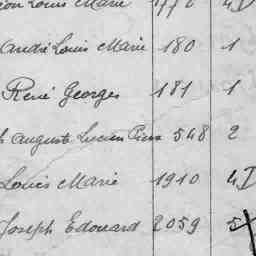 Louis Marie 1772 4
André Louis Marie 180 1
René Georges 181 1
Auguste Lucien Pierre 548 2
Louis Marie 1910 4
Joseph Edouard 2059 5